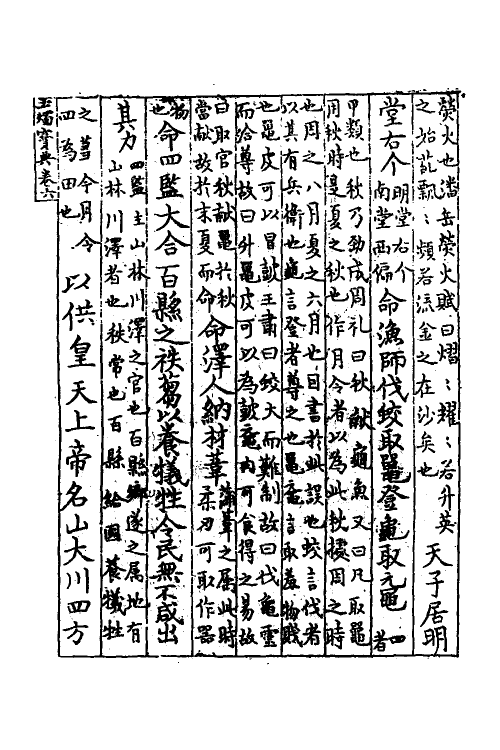 螢火也潘岳螢火賦曰熠〻耀〻若升英
之始茫飄〻頻若流金之在沙矣也
天子居明
堂右个
明堂右个
南堂西偏
命漁師伐蛟取鼉登龜取黿
四
者
甲類也秋乃勁成周礼曰秋獻龜魚又曰凡取龜
用秋時是夏之秋也作月令者以為此秋據周之時
也周之八月夏之六月也因書於此誤也蛟言伐者
以其有兵衛也龜言登者尊之也鼉黿言取羞物賤
也鼉皮可以冒皷王肅曰蛟大而難制故曰伐龜霊
而給尊故曰升鼉皮可以為皷黿肉可食得之易故
曰取官秋献鼉於秋
當献故於末夏而命
命澤人納材葦
蒲葦之屬此時
柔刃可取作器
物
也
命四監大合百縣之祑蒭以養犧牲令民無不咸出
其力
四監主山林川澤之官也百縣鄉遂之属地有
山林川澤者也秩常也百縣給國養犧牲
之蒭今月令
四為田也
以供皇天上帝名山大川四方
玉燭寶典卷六